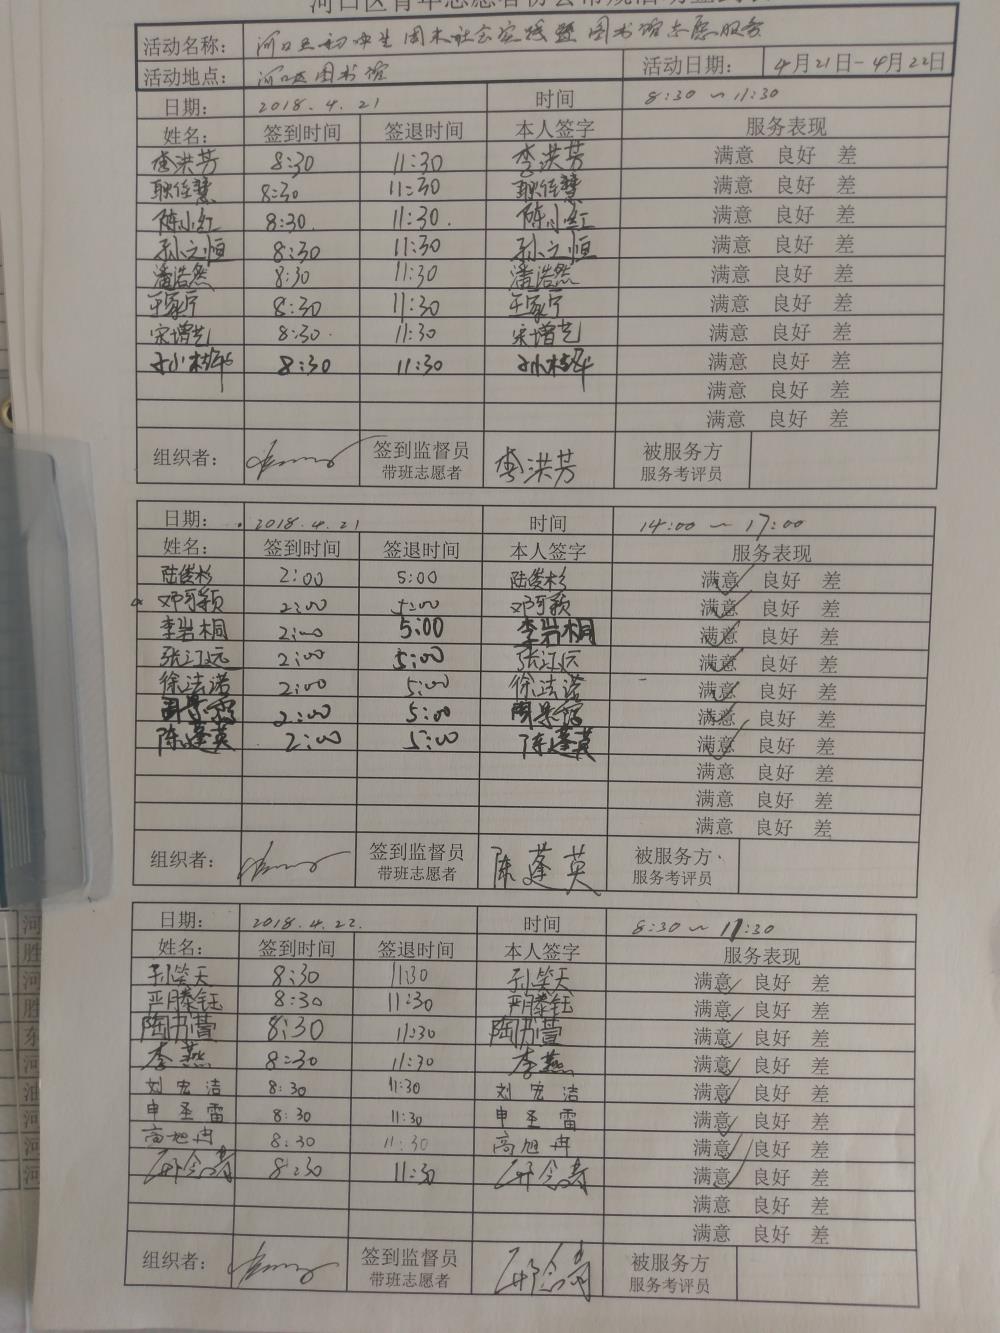 活动名称: 河口区初中生周末社会实践暨图书馆志愿服务
活动地点: 河口区图书馆 活动日期: 4月21日-4月22日
日期: 2018.4.21 时间 8:30 ~ 11:30
姓名: 签到时间 签退时间 本人签字 服务表现
李洪芳 8:30 11:30 李洪芳 满意 良好 差
8:30 11:30 满意 良好 差
陈小红 8:30. 11:30. 陈小红 满意 良好 差
孙立恒 8:30 11:30 孙立恒 满意 良好 差
潘浩然 8:30 11:30 潘浩然 满意 良好 差
王家宁 8:30 11:30 王家宁 满意 良好 差
宋增艺 8:30. 11:30 宋增艺 满意 良好 差
8:30 11:30 满意 良好 差
满意 良好 差
满意 良好 差
组织者: 签到监督员 带班志愿者 李洪芳 被服务方 服务考评员
日期: 2018.4.21 时间 14:00 ~ 17:00
姓名: 签到时间 签退时间 本人签字 服务表现
陆俊杉 2:00 5:00 陆俊杉 满意 良好 差
邓可颖 2:00 5:00 邓可颖 满意 良好 差
李岩桐 2:00 5:00 李岩桐 满意 良好 差
张江远 2:00 5:00 张江远 满意 良好 差
徐法诺 2:00 5:00 徐法诺 满意 良好 差
2:00 5:00 满意 良好 差
陈蓬英 2:00 5:00 陈蓬英 满意 良好 差
满意 良好 差
满意 良好 差
满意 良好 差
组织者: 签到监督员 带班志愿者 陈蓬英 被服务方 服务考评员
日期: 2018.4.22. 时间 8:30 ~ 11:30
姓名: 签到时间 签退时间 本人签字 服务表现
孙笑天 8:30 11:30 孙笑天 满意 良好 差
严滕钰 8:30 11:30 严滕钰 满意 良好 差
陶书萱 8:30 11:30 陶书萱 满意 良好 差
李燕 8:30 11:30 李燕 满意 良好 差
刘宏洁 8:30 11:30 刘宏洁 满意 良好 差
申圣雷 8:30 11:30 申圣雷 满意 良好 差
高旭冉 8:30 11:30 高旭冉 满意 良好 差
邢念涛 8:30 11:30 邢念涛 满意 良好 差
满意 良好 差
满意 良好 差
组织者: 签到监督员 带班志愿者 邢念涛 被服务方 服务考评员